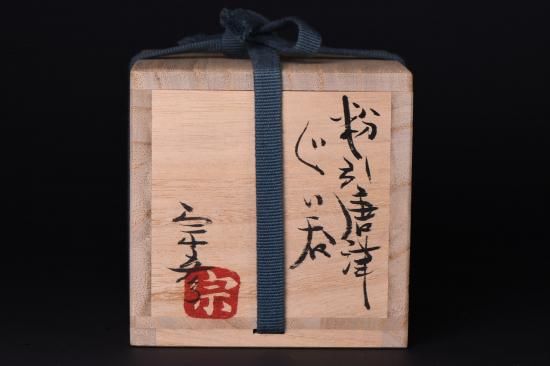 粉引唐津
ぐい呑
宗彦
宗